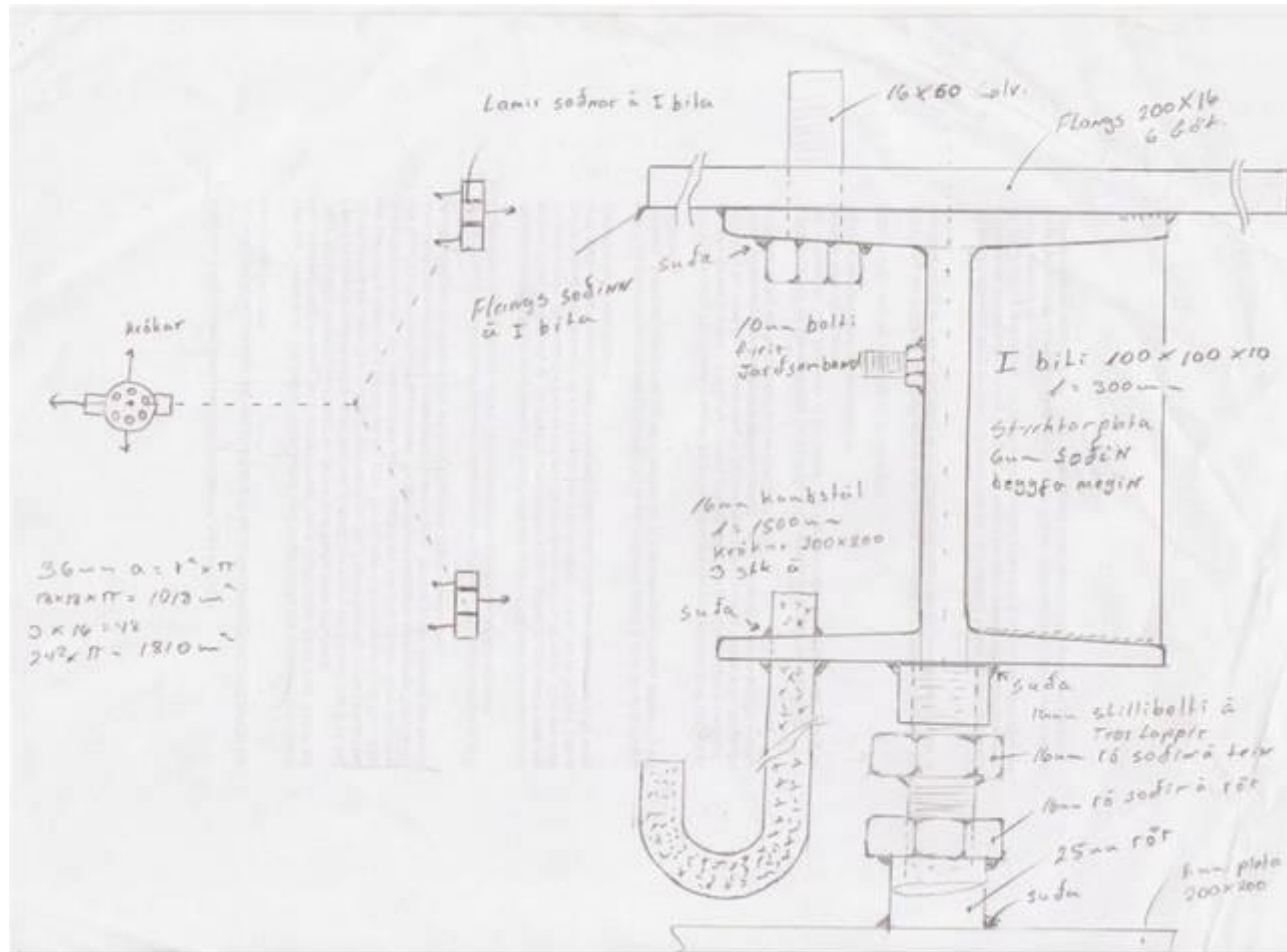 Lamir soðnar á I bita
16x60 Galv.
Flangs 200x16
6 Göt.
Flangs soðinn
á I bita
suða
Krókar
10mm bolti
fyrir
Jarðsamband
I biti 100x100x10
l = 300mm
Styrktarplata
6mm soðin
beggja megin
16mm kambstál
l = 1500mm
Krókur 200x200
3 stk á
suða
36mm a = r² x π
18x18xπ = 1018 mm²
3 x 16 = 48
24² x π = 1810 mm²
suða
16mm stillibolti á
16mm ró soðin á tein
16mm ró soðin á rör
25mm rör
suða
plata
200x200